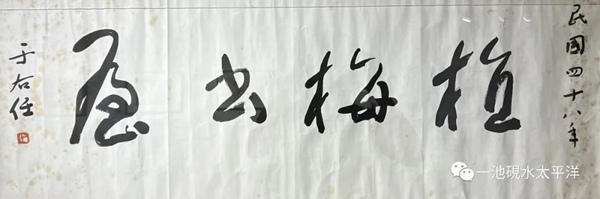 民國四十八年
植梅書屋
于右任
一池硯水太平洋